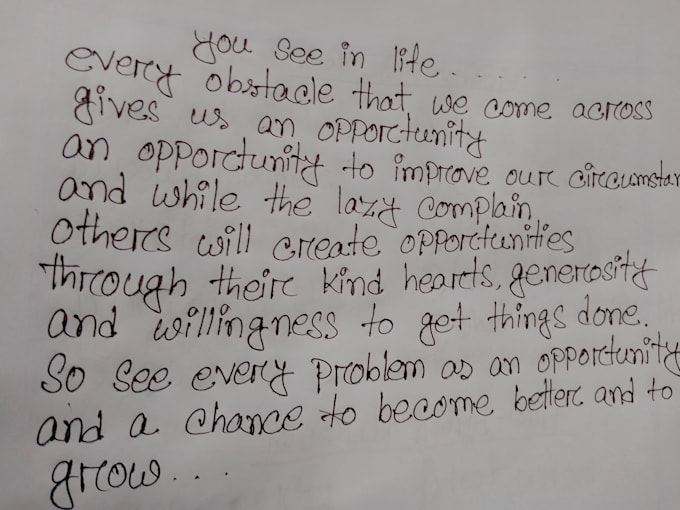 you see in life........
every obstacle that we come across
gives us an opportunity
an opportunity to improve our circumstan
and while the lazy complain
others will create opportunities
through their kind hearts, generosity
and willingness to get things done.
So see every problem as an opportunity
and a chance to become better and to
grow...